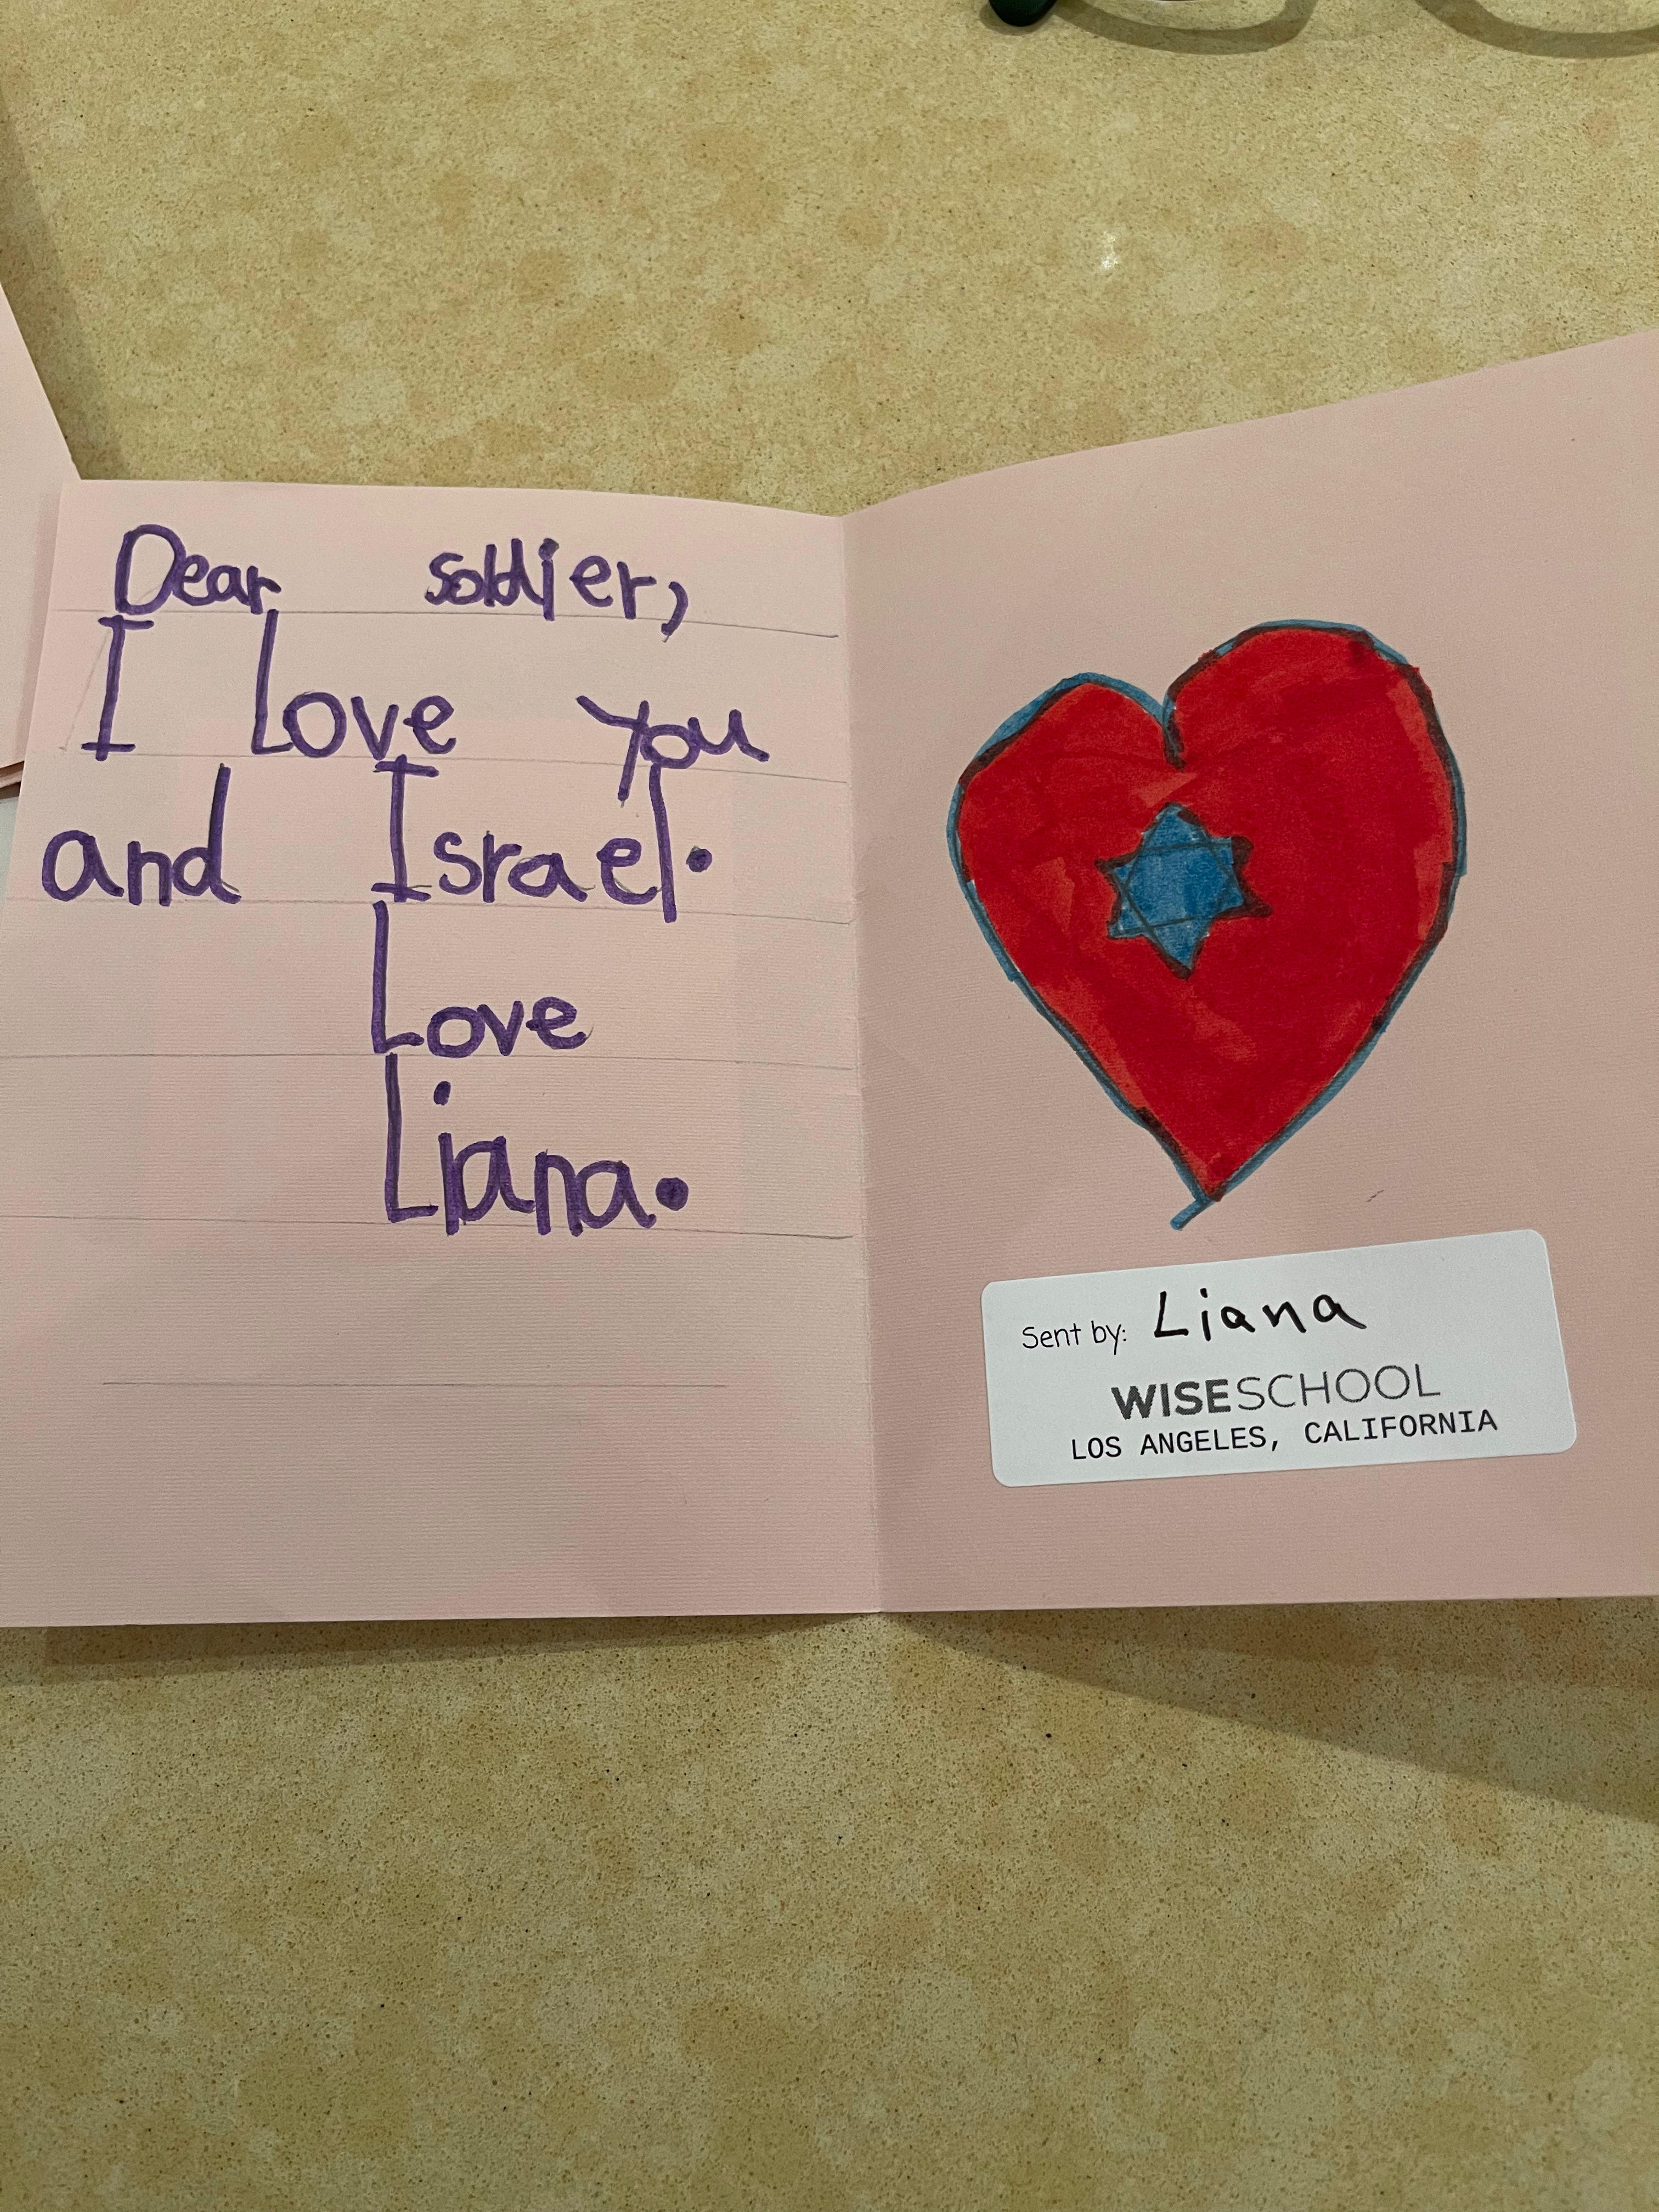 Dear soldier,
I Love you
and Israel.
Love
Liana.
Sent by: Liana
WISESCHOOL
LOS ANGELES, CALIFORNIA